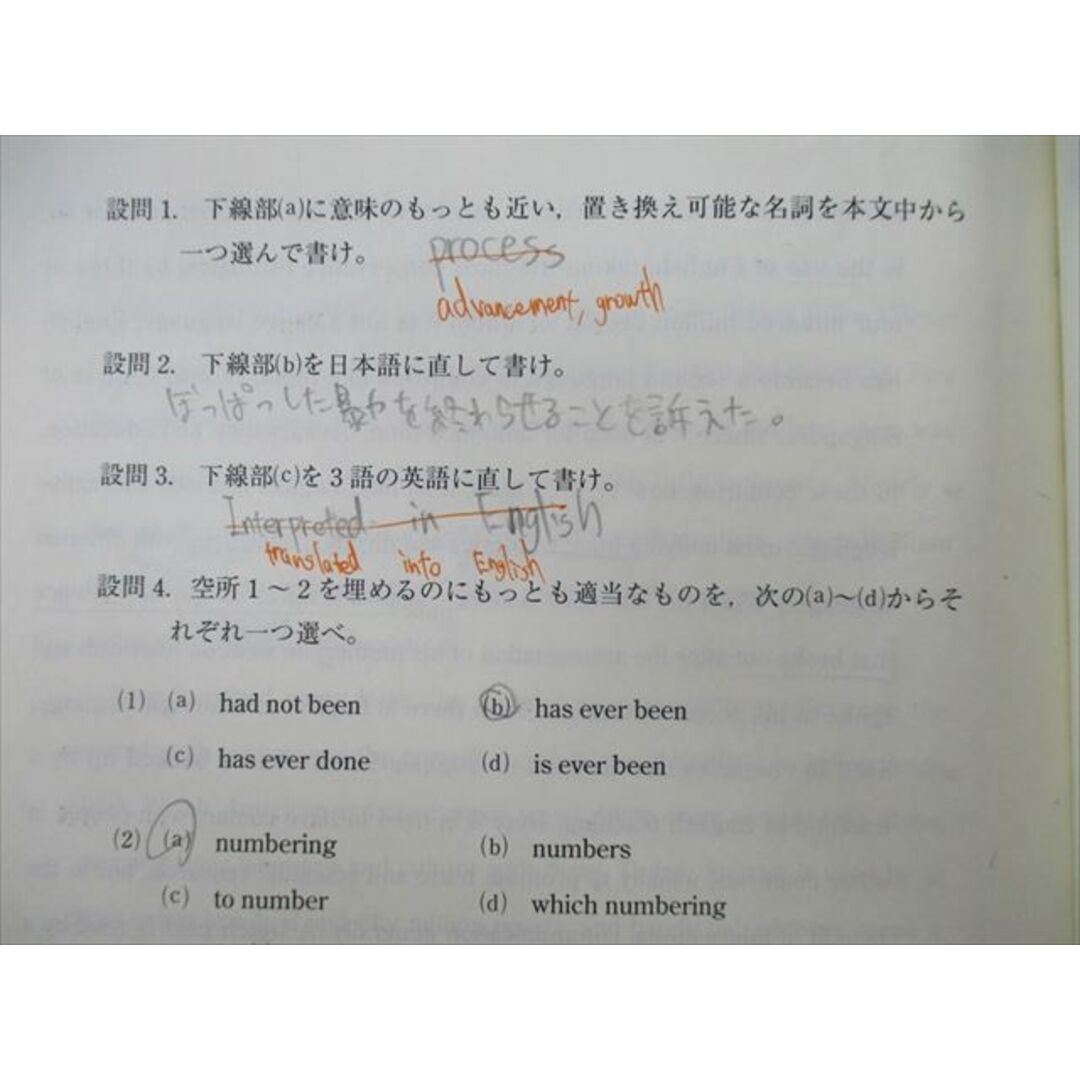 設問1. 下線部(a)に意味のもっとも近い，置き換え可能な名詞を本文中から
一つ選んで書け。 process
advancement, growth
設問2. 下線部(b)を日本語に直して書け。
ぼっぱつした暴力を終わらせることを訴えた。
設問3. 下線部(c)を3語の英語に直して書け。
Interpreted in English
translated into English
設問4. 空所1～2を埋めるのにもっとも適当なものを，次の(a)～(d)からそ
れぞれ一つ選べ。
(1) (a) had not been (b) has ever been
(c) has ever done (d) is ever been
(2) (a) numbering (b) numbers
(c) to number (d) which numbering